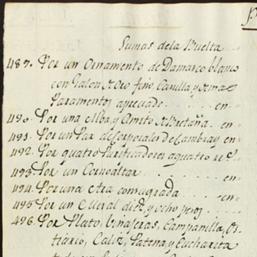 Sumas dela Vuelta
489. Por un Ornamento de Damasco blanco
con Galon de Oro fino, Casulla, y demas
Paramentos, apreciado en
490. Por una Alba y Amito de Bretaña en
491. Por un Par de Corporales de Cambray en
492. Por quatro Purificadores aquatro rs
493. Por un Cornualtar
494. Por una Ara consagrada en
495. Por un Misal diez y ocho pesos
496. Por Plato, Vinajeras, Campanilla,
Caliz, Patena y Cucharita